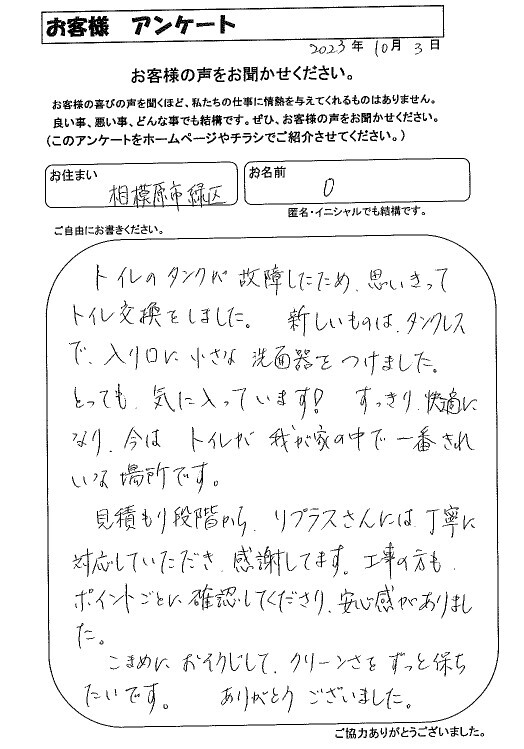 お客様 アンケート
2023年 10月 3日
お客様の声をお聞かせください。
お客様の喜びの声を聞くほど、私たちの仕事に情熱を与えてくれるものはありません。
良い事、悪い事、どんな事でも結構です。ぜひ、お客様の声をお聞かせください。
(このアンケートをホームページやチラシでご紹介させてください。)
お住まい 相模原市緑区
お名前 O
匿名・イニシャルでも結構です。
ご自由にお書きください。
トイレのタンクが故障したため、思いきって
トイレ交換をしました。 新しいものは、タンクレス
で、入り口に小さな洗面器をつけました。
とっても、気に入っています! すっきり、快適に
なり、今は トイレが 我が家の中で一番きれ
いな場所です。
見積もり段階から、リプラスさんには、丁寧に
対応していただき、感謝してます。工事の方も、
ポイントごとに確認してくださり、安心感がありまし
た。
こまめにおイクじして、クリーンさをずっと保ち
たいです。 ありがとうございました。
ご協力ありがとうございました。